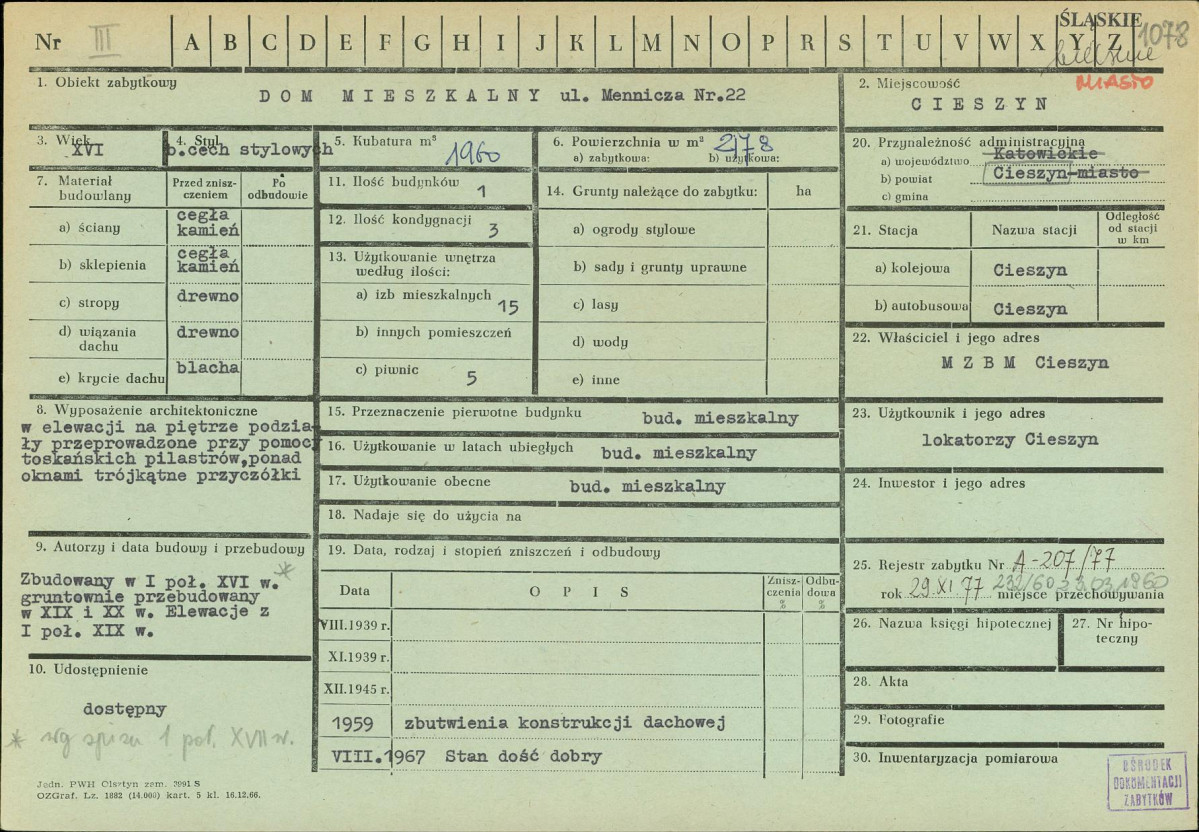 Nr III A B C D E F G H I J K L M N O P R S T U V W X Y Z
ŚLĄSKIE
1078
bielskie
MIASTO
1. Obiekt zabytkowy
DOM MIESZKALNY ul. Mennicza Nr.22
2. Miejscowość
CIESZYN
3. Wiek
XVI
4. Styl
b.cech stylowych
5. Kubatura m³
1960
6. Powierzchnia w m²
a) zabytkowa: b) użytkowa:
278
7. Materiał budowlany
Przed zniszczeniem
Po odbudowie
a) ściany
cegła
kamień
b) sklepienia
cegła
kamień
c) stropy
drewno
d) wiązania
dachu
drewno
e) krycie dachu
blacha
8. Wyposażenie architektoniczne
w elewacji na piętrze podzia-
ły przeprowadzone przy pomocy
toskańskich pilastrów,ponad
oknami trójkątne przyczółki
9. Autorzy i data budowy i przebudowy
Zbudowany w I poł. XVI w. *
gruntownie przebudowany
w XIX i XX w. Elewacje z
I poł. XIX w.
10. Udostępnienie
dostępny
* wg spisu 1 poł. XVII w.
11. Ilość budynków
1
12. Ilość kondygnacji
3
13. Użytkowanie wnętrza
według ilości:
a) izb mieszkalnych
15
b) innych pomieszczeń
c) piwnic
5
14. Grunty należące do zabytku:
ha
a) ogrody stylowe
b) sady i grunty uprawne
c) lasy
d) wody
e) inne
15. Przeznaczenie pierwotne budynku
bud. mieszkalny
16. Użytkowanie w latach ubiegłych
bud. mieszkalny
17. Użytkowanie obecne
bud. mieszkalny
18. Nadaje się do użycia na
19. Data, rodzaj i stopień zniszczeń i odbudowy
Data
OPIS
Zniszczenia %
Odbudowa %
VIII.1939 r.
XI.1939 r.
XII.1945 r.
1959 zbutwienia konstrukcji dachowej
VIII.1967 Stan dość dobry
20. Przynależność administracyjna
a) województwo Katowickie
b) powiat Cieszyn-miasto
c) gmina
21. Stacja
Nazwa stacji
Odległość
od stacji
w km
a) kolejowa Cieszyn
b) autobusowa Cieszyn
22. Właściciel i jego adres
M Z B M Cieszyn
23. Użytkownik i jego adres
lokatorzy Cieszyn
24. Inwestor i jego adres
25. Rejestr zabytku Nr A-207/77
232/60 3.03.1960
rok 29 XI 77 miejsce przechowywania
26. Nazwa księgi hipotecznej
27. Nr hipo-
teczny
28. Akta
29. Fotografie
30. Inwentaryzacja pomiarowa
OŚRODEK
DOKUMENTACJI
ZABYTKÓW
Jedn. PWH Olsztyn zam. 3991 S
OZGraf. Lz. 1882 (14.000) kart. 5 kl. 16.12.66.